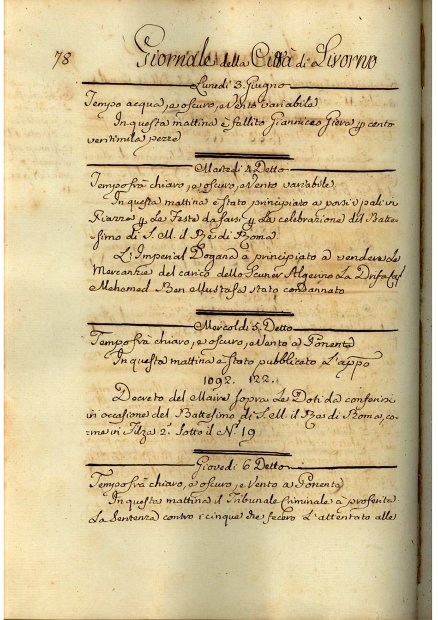 78 Giornale della Città di Livorno
Lunedi 3. Giugno
Tempo acqua, e oscuro, e Vento variabile
In questa mattina è fallito Giannicco Giera p cento
ventimila pezze
Martedi 4. Detto
Tempo frà chiaro, e oscuro, e Vento variabile.
In questa mattina è stato principiato a porsi i pali in
Piazza p Le Feste da farsi p La celebrazione del Batte-
simo di S. M. il Rè di Roma.
L'Imperial Dogana à principiato a vendere Le
Mercanzie del carico dello Algerino La
Mehomed Ben Mustafa stato condannato
Mercoldi 5. Detto
Tempo frà chiaro, e oscuro, e Vento a Ponente
In questa mattina è stato pubblicato L'appo
1092. 122.
Decreto del Maire sopra Le Doti da conferirsi
in occasione del Battesimo di S. M. il Rè di Roma, co-
me in Filza 2ª. Sotto il N.º 19
Giovedi 6 Detto
Tempo frà chiaro, e oscuro, e Vento a Ponente
In questa mattina il Tribunale Criminale à proferita
La Sentenza contro i cinque che fecero L'attentato alle